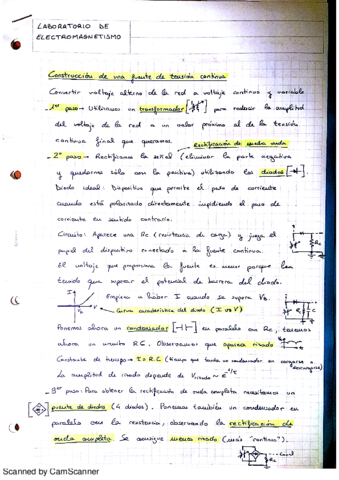 LABORATORIO DE
ELECTROMAGNETISMO
Construcción de una fuente de tensión continua
Convertir voltaje alterno de la red a voltaje continuo y variable
- 1er paso → Utilizamos un transformador [ ] para reducir la amplitud
del voltaje de la red a un valor próximo al de la tensión
continua final que queramos.
Rectificación de media onda
- 2º paso → Rectificamos la señal (eliminar la parte negativa
y quedarnos sólo con la positiva) utilizando los diodos [ ].
Diodo ideal: Dispositivo que permite el paso de corriente
cuando está polarizado directamente impidiendo el paso de
corriente en sentido contrario.
Circuito: Aparece una Rc (resistencia de carga) y juega el
papel del dispositivo conectado a la fuente continua.
El voltaje que proporciona la fuente es menor porque
tenido que superar el potencial de barrera del diodo.
I
Empieza a haber I cuando se supera VB.
Curva característica del diodo (I vs V)
V
Rc
C
Ponemos ahora un condensador [ ] en paralelo con Rc, tenemos
ahora un circuito RC. Observamos que aparece rizado
Constante de tiempo → = R.C (tiempo que tarda un condensador en cargarse o
descargarse)
La amplitud de rizado depende de
- 3er paso: Para obtener la rectificación de onda completa necesitamos un
puente de diodos (4 diodos). Ponemos también un condensador en
paralelo con la resistencia, observando la rectificación de
onda completa. Se consigue menos rizado (más "continua").
Scanned by CamScanner